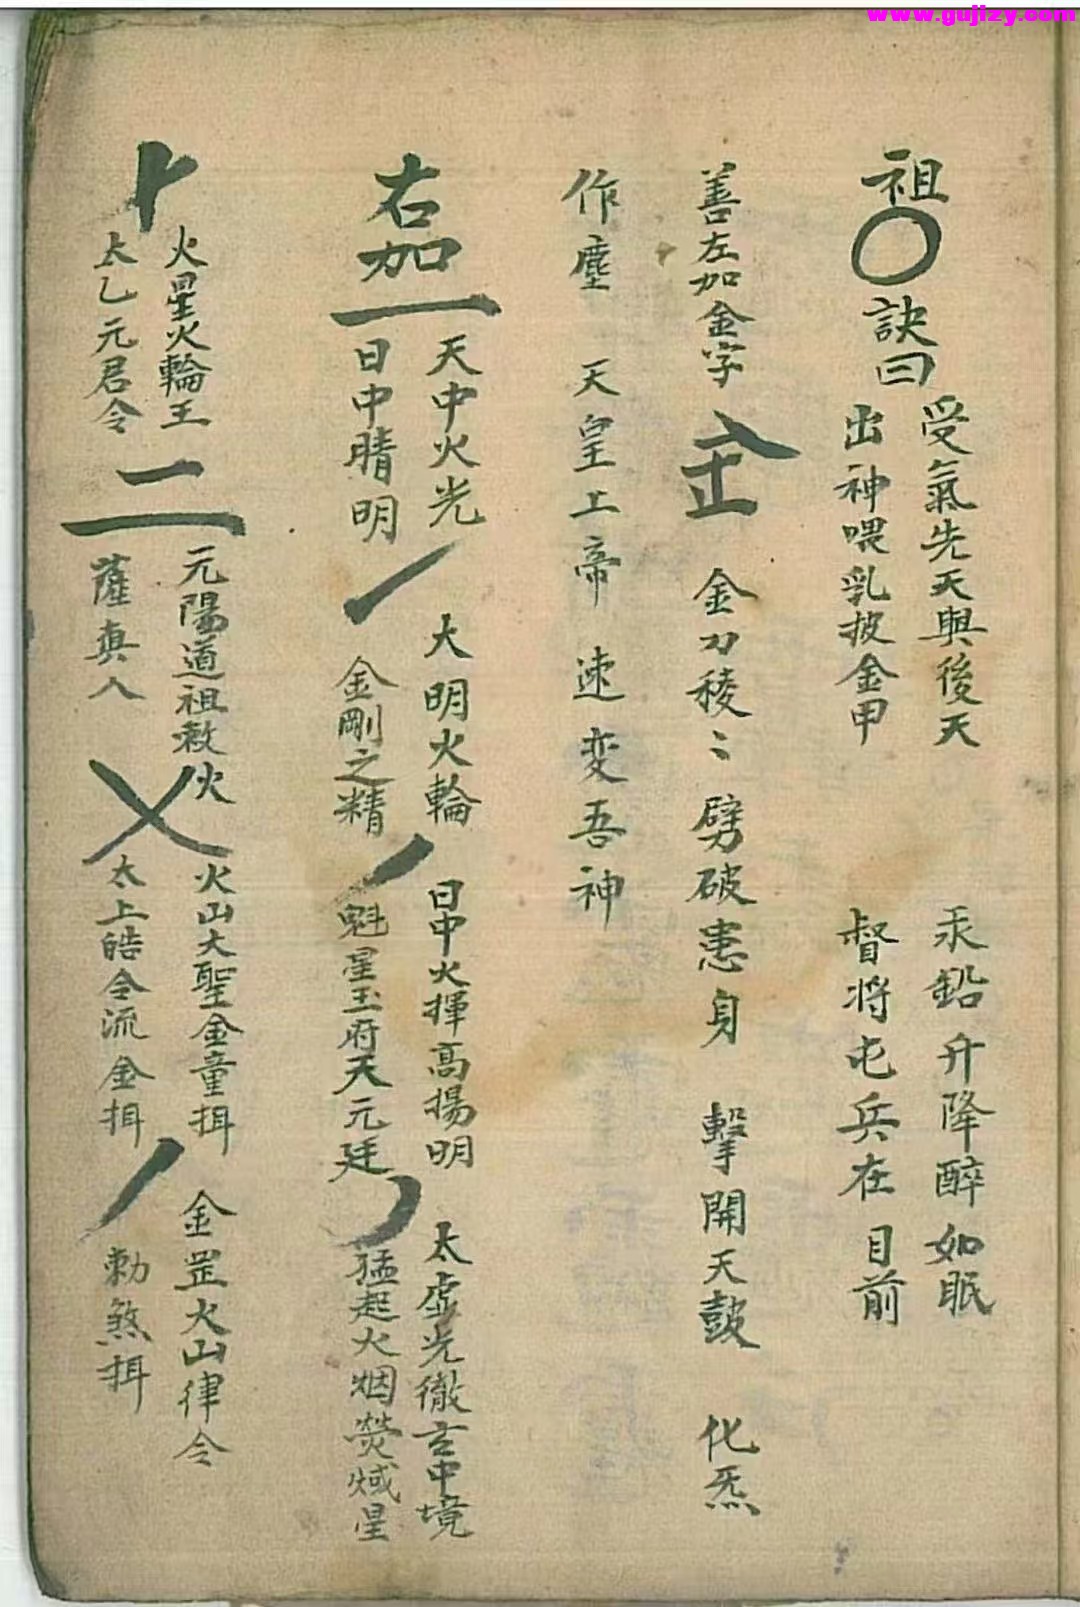 www.gujizy.com
祖〇訣曰
受氣先天與後天
出神喂乳披金甲
汞鉛升降醉如眠
督將屯兵在目前
善左加金字
金刀稜〻劈破患身 擊開天鼓 化炁
作塵 天皇上帝 速变吾神
右加
一
天中火光
日中晴明
大明火輪
金剛之精
日中火揮高揚明
魁星玉府天元廷
太虛光徹玄中境
猛起火烟熒惑星
火星火輪王
太乙元君令
二
元陽道祖救火
薩真人
火山大聖金童揖
太上皓令流金揖
金罡火山律令
勅煞揖